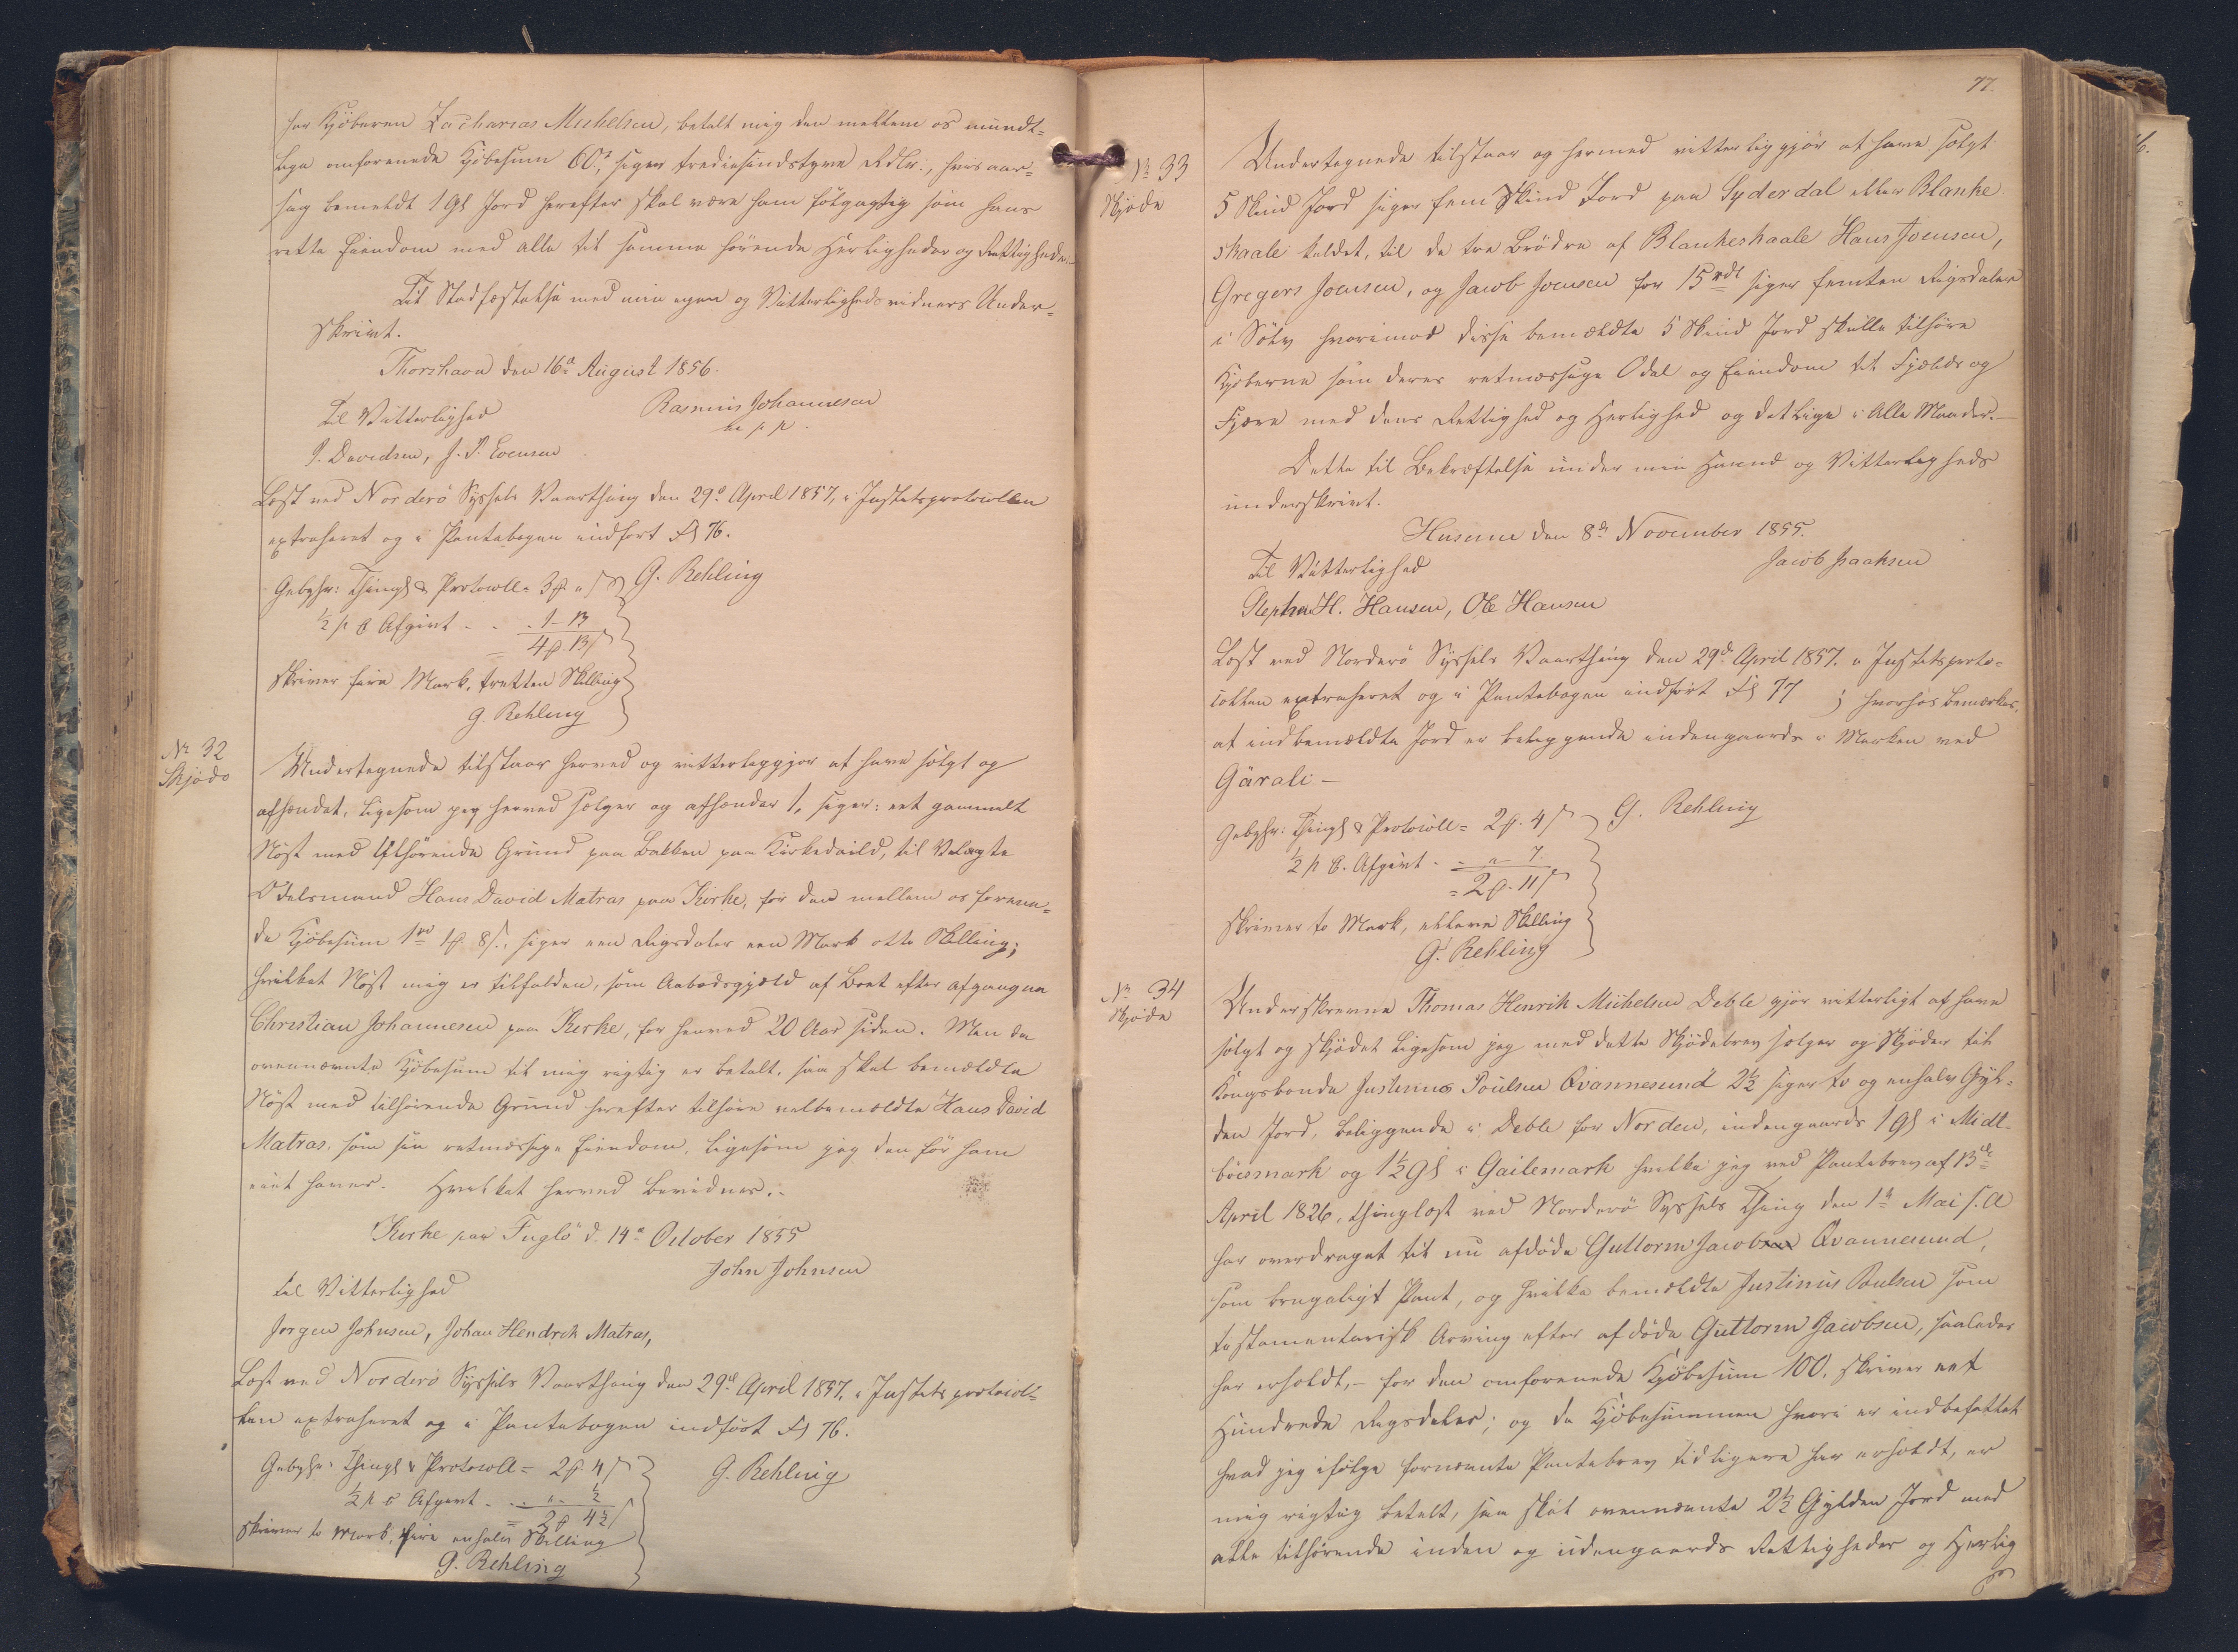 har Kjöberen Zacharias Michelsen, betalt mig den mellem os mundt=
lige omforenede Kjöbesum 60 rd, siger tredsindstyve Rdlr., hvis aar=
sag bemeldt 1 Gl Jord herefter skal være ham fölgagtig som hans
rette Eiendom med alle til samme hörende Herligheder og Rettigheder.
Til Stadfæstelse med min egen og Vitterligheds vidners Under=
skrivt.
Thorshavn den 16de August 1856.
Til Vitterlighed
Rasmus Johannesen
m. f. p.
P. Davidsen, J. P. Evensen
Læst ved Norderö Syssels Vaarthing den 29de April 1857, i Justitsprotocollen
extraheret og i Pantebogen indfört Fol 76.
Gebyhr: Thingl & Protocoll = 3 ₰ " s
½ p C Afgivt - - 1 - 13
= 4 ₰ 13 s
G. Rehling
skriver fire Mark, tretten Skilling
G. Rehling
No 32
Skjöde
Undertegnede tilstaar herved og vitterliggjör at have solgt og
afhændet, ligesom jeg herved sælger og afhænder 1, siger: eet gammelt
Nöst med tilhörende Grund paa Bakken paa Kirkedaild, til Velagte
Odelsmand Hans David Matras paa Kirke, for den mellem os forene=
de Kjöbesum 1 rd 1 ₰ 8 s., siger een Rigsdaler een Mark otte Skilling;
hvilket Nöst mig er tilfalden, som Aabodsgjæld af Boet efter afgangne
Christian Johannesen paa Kirke, for henved 20 Aar siden. Men da
ovennævnte Kjöbesum til mig rigtig er betalt, saa skal bemældte
Nöst med tilhörende Grund herefter tilhöre velbemældte Hans David
Matras, som sin retmæssige Eiendom, ligesom jeg den för ham
eiet haver. Hvilket herved bevidnes.-
Kirke paa Fuglö d. 14de October 1855
John Johnsen
Til Vitterlighed
Jörgen Johnsen, Johan Hendrik Matras,
Læst ved Norderö Syssels Vaarthing den 29de April 1857, i Justitsprotocol=
len extraheret og i Pantebogen indfört Fol 76.
Gebyhr: Thingl & Protocoll = 2 ₰ 4 s
½ p C Afgivt - - " - ½
= 2 ₰ 4½ s
G. Rehling
skriver to Mark, fire enhalv Skilling
G. Rehling
77.
No 33
Skjöde
Undertegnede tilstaar og hermed vitterliggjör at have solgt
5 Skind Jord siger fem Skind Jord paa Syderdal eller Blanke
skaale kaldet, til de tre Brödre af Blankeskaale Hans Joensen,
Gregers Joensen, og Jacob Joensen for 15 rdl siger femten Rigsdaler
i Sölv hvorimod disse bemældte 5 Skind Jord skulle tilhöre
Kjöberne som deres retmæssige Odel og Eiendom til Fjælds og
Fjære med dens Rettighed og Herlighed og detlige i Alle Maader.-
Dette til Bekræftelse under min Haand og Vitterligheds
underskrivt.
Husene den 8de November 1855.
Til Vitterlighed
Jacob Isaaksen
Stephan H. Hansen, Ole Hansen
Læst ved Norderö Syssels Vaarthing den 29de April 1857. i Justitsproto=
collen extraheret og i Pantebogen indfört Fol 77; hvorhos bemærkes,
at indbemældte Jord er beliggende indengaards i Marken ved
Gärali -
Gebyhr: Thingl & Protocoll = 2 ₰ 4 s
½ p C. Afgivt - - " - 7.
= 2 ₰ 11 s
G. Rehling
skriver to Mark, elleve Skilling
G. Rehling
No 34
Skjöde
Underskrevne Thomas Henrik Michelsen Deble gjör vitterligt at have
solgt og skjödet ligesom jeg med dette Skjödebrev sælger og skjöder til
Kongsbonde Justinus Poulsen Qvannesund 2½ siger to og enhalv Gyl=
den Jord, beliggende i Deble for Norden, indengaards 1 Gl i Midt=
böismark og 1½ Gl i Gailemark hvilke jeg ved Pantebrev af 13de
April 1826, thinglæst ved Norderö Syssels Thing den 1ste Mai s. A
har overdraget til nu afdöde Guttorm Jacobsen Qvannesund,
som brugeligt Pant, og hvilke bemældte Justinus Poulsen som
testamentarisk Arving efter afdöde Guttorm Jacobsen, saaledes
har erholdt, - for den omforenede Kjöbesum 100, skriver eet
Hundrede Rigsdaler; og da Kjöbesummen hvori er indbefattet
hvad jeg ifölge fornævnte Pantebrev tidligere har erholdt, er
mig rigtig betalt, saa skal ovennævnte 2½ Gylden Jord med
alle tilhörende inden og udengaards Rettigheder og Herlig